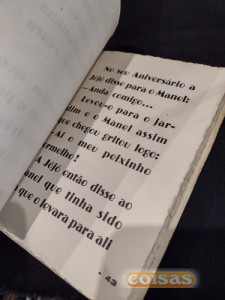 No seu Aniversário a
Jójó disse para o Manel:
— Anda comigo...
Levou-o para o jar-
dim e o Manel assim
que chegou gritou logo:
— Ai o meu peixinho
ermelho!
A Jójó então disse ao
anel que tinha sido
que o levara para ali
- 43
coisas